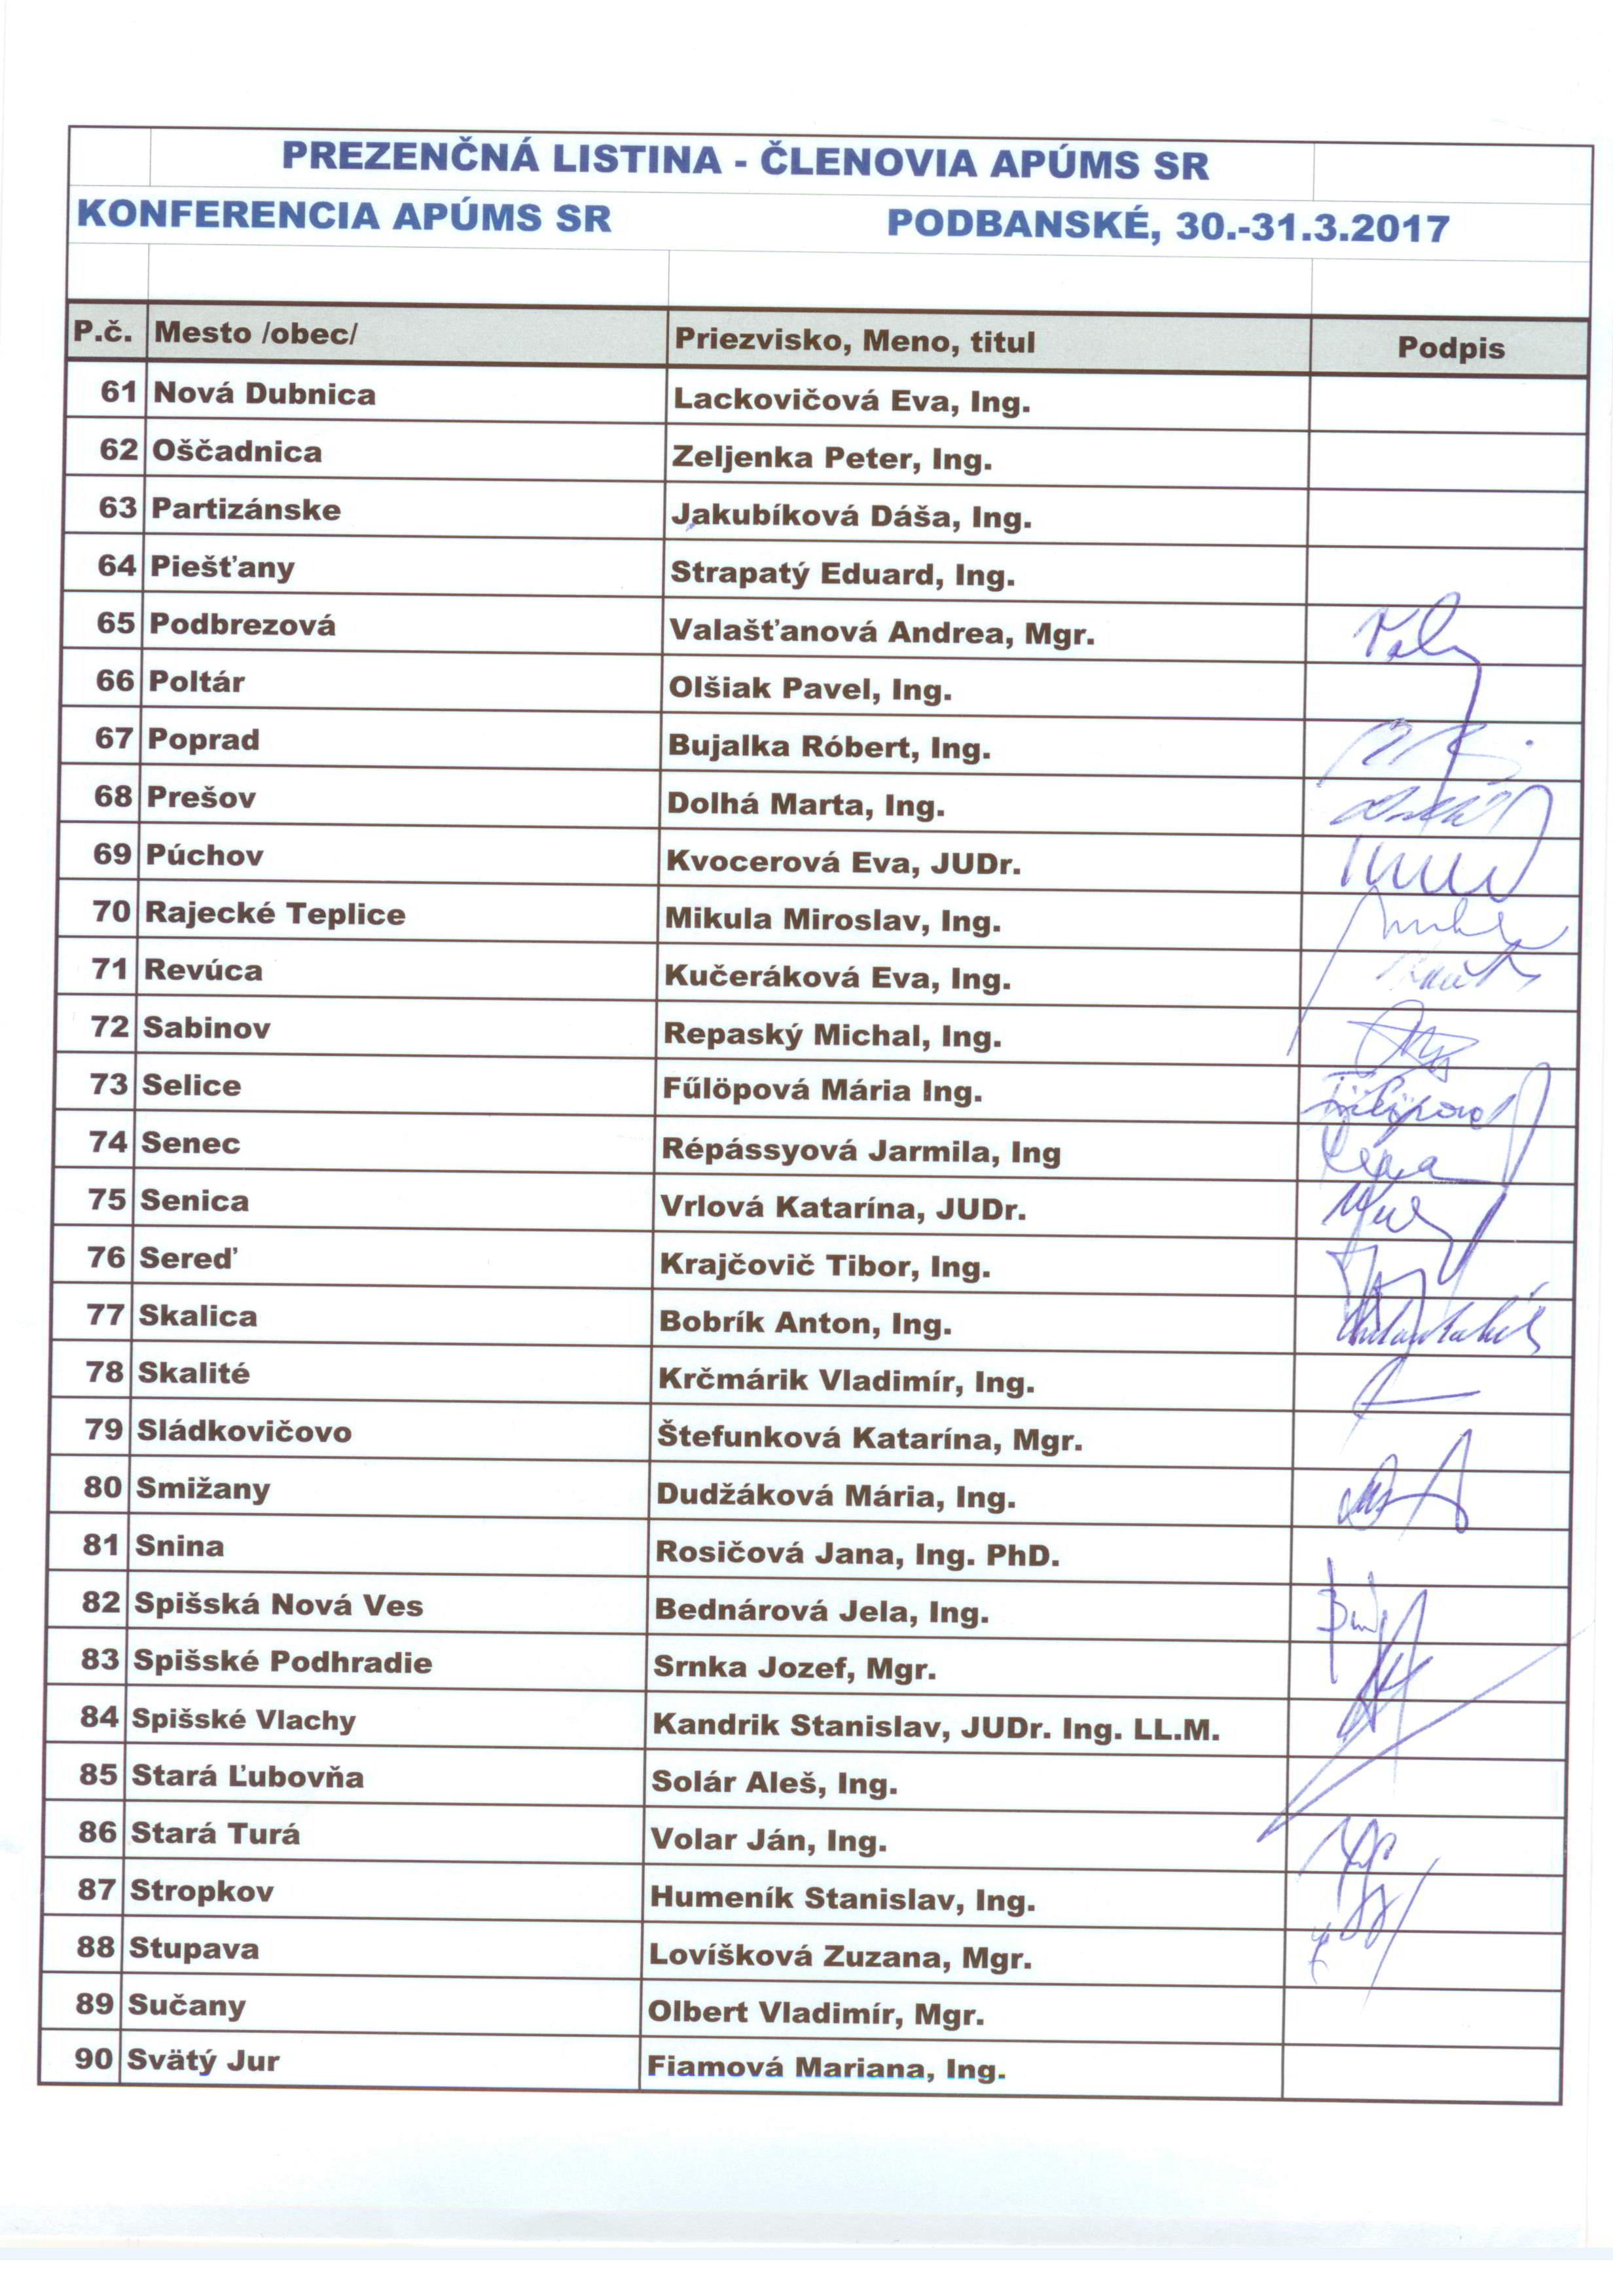 PREZENČNÁ LISTINA - ČLENOVIA APÚMS SR
KONFERENCIA APÚMS SR PODBANSKÉ, 30.-31.3.2017
P.č. Mesto /obec/ Priezvisko, Meno, titul Podpis
61 Nová Dubnica Lackovičová Eva, Ing.
62 Oščadnica Zeljenka Peter, Ing.
63 Partizánske Jakubíková Dáša, Ing.
64 Piešťany Strapatý Eduard, Ing.
65 Podbrezová Valašťanová Andrea, Mgr.
66 Poltár Olšiak Pavel, Ing.
67 Poprad Bujalka Róbert, Ing.
68 Prešov Dolhá Marta, Ing.
69 Púchov Kvocerová Eva, JUDr.
70 Rajecké Teplice Mikula Miroslav, Ing.
71 Revúca Kučeráková Eva, Ing.
72 Sabinov Repaský Michal, Ing.
73 Selice Fűlöpová Mária Ing.
74 Senec Répássyová Jarmila, Ing
75 Senica Vrlová Katarína, JUDr.
76 Sereď Krajčovič Tibor, Ing.
77 Skalica Bobrík Anton, Ing.
78 Skalité Krčmárik Vladimír, Ing.
79 Sládkovičovo Štefunková Katarína, Mgr.
80 Smižany Dudžáková Mária, Ing.
81 Snina Rosičová Jana, Ing. PhD.
82 Spišská Nová Ves Bednárová Jela, Ing.
83 Spišské Podhradie Srnka Jozef, Mgr.
84 Spišské Vlachy Kandrik Stanislav, JUDr. Ing. LL.M.
85 Stará Ľubovňa Solár Aleš, Ing.
86 Stará Turá Volar Ján, Ing.
87 Stropkov Humeník Stanislav, Ing.
88 Stupava Lovíšková Zuzana, Mgr.
89 Sučany Olbert Vladimír, Mgr.
90 Svätý Jur Fiamová Mariana, Ing.